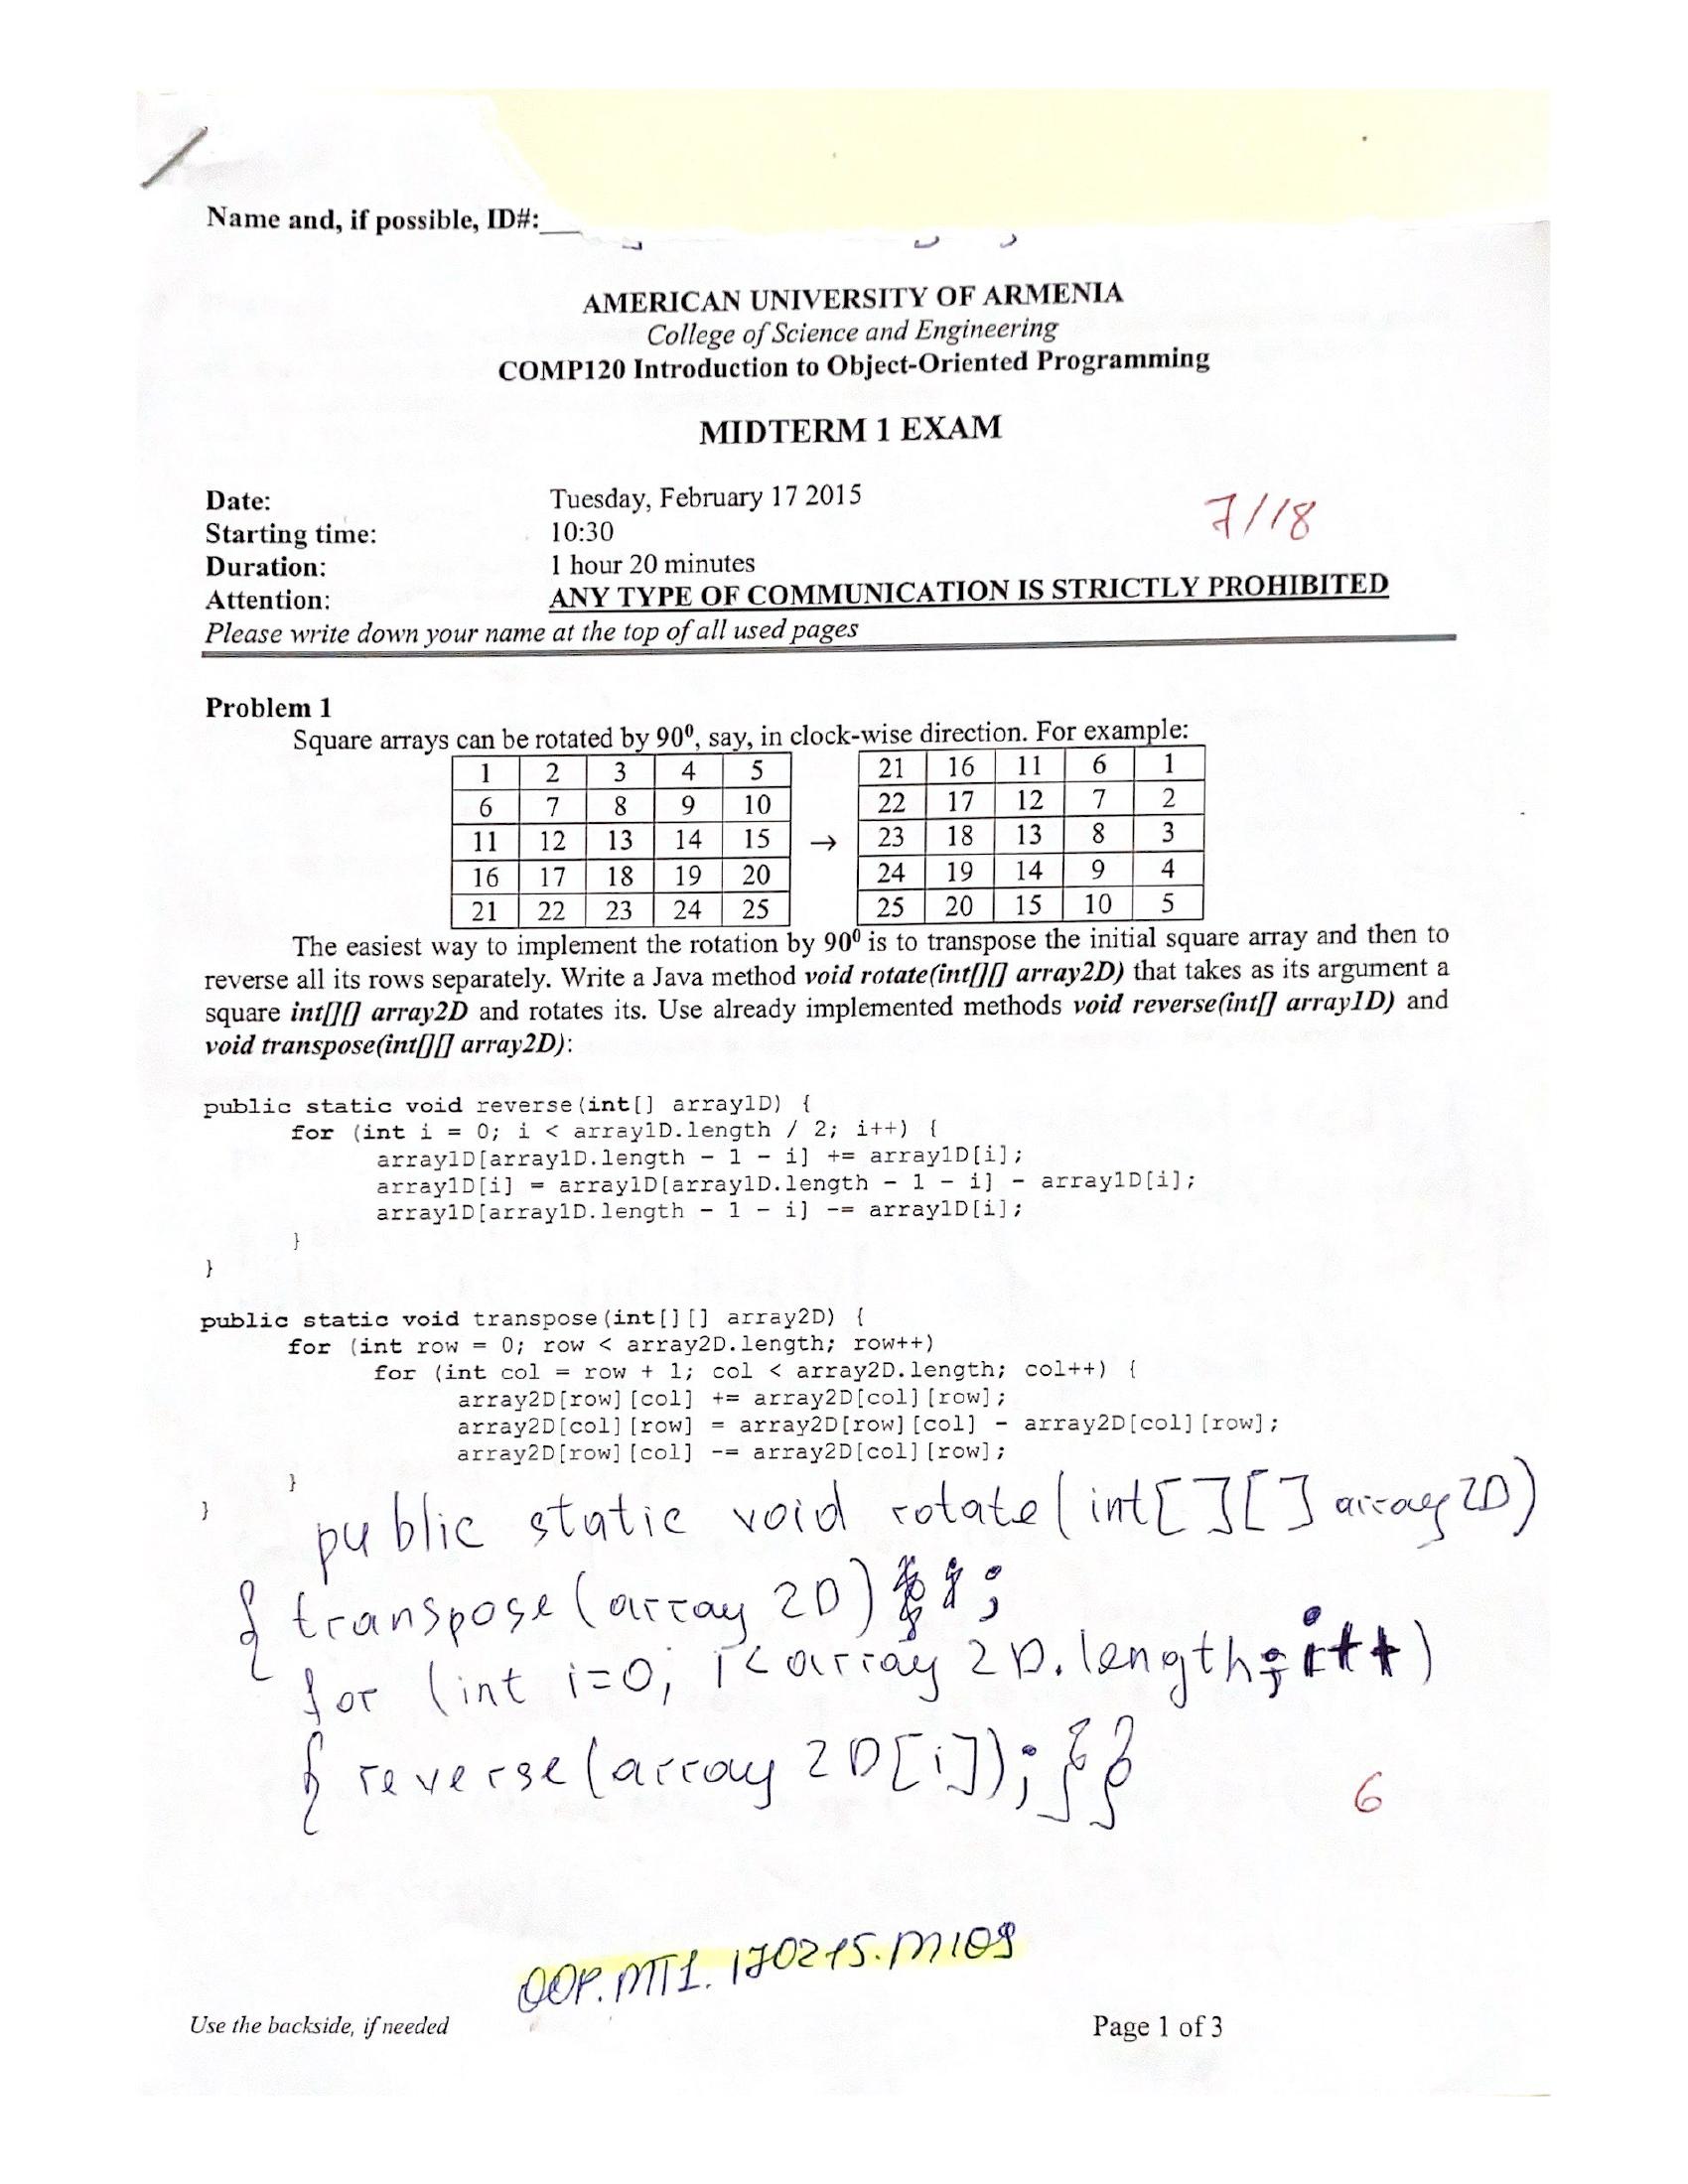 Name and, if possible, ID#:
AMERICAN UNIVERSITY OF ARMENIA
College of Science and Engineering
COMP120 Introduction to Object-Oriented Programming
MIDTERM 1 EXAM
Date: Tuesday, February 17 2015
7/18
Starting time: 10:30
Duration: 1 hour 20 minutes
Attention: ANY TYPE OF COMMUNICATION IS STRICTLY PROHIBITED
Please write down your name at the top of all used pages
Problem 1
Square arrays can be rotated by 90⁰, say, in clock-wise direction. For example:
1 2 3 4 5 21 16 11 6 1
6 7 8 9 10 22 17 12 7 2
11 12 13 14 15 → 23 18 13 8 3
16 17 18 19 20 24 19 14 9 4
21 22 23 24 25 25 20 15 10 5
The easiest way to implement the rotation by 90⁰ is to transpose the initial square array and then to
reverse all its rows separately. Write a Java method void rotate(int[][] array2D) that takes as its argument a
square int[][] array2D and rotates its. Use already implemented methods void reverse(int[] array1D) and
void transpose(int[][] array2D):
public static void reverse(int[] array1D) {
for (int i = 0; i < array1D.length / 2; i++) {
array1D[array1D.length - 1 - i] += array1D[i];
array1D[i] = array1D[array1D.length - 1 - i] - array1D[i];
array1D[array1D.length - 1 - i] -= array1D[i];
}
}
public static void transpose(int[][] array2D) {
for (int row = 0; row < array2D.length; row++)
for (int col = row + 1; col < array2D.length; col++) {
array2D[row][col] += array2D[col][row];
array2D[col][row] = array2D[row][col] - array2D[col][row];
array2D[row][col] -= array2D[col][row];
}
}
public static void rotate(int[][] array2D)
{ transpose(array 2D) ;
for (int i=0; i<array 2D.length; i++)
{ reverse(array 2D[i]); }}
6
OOP.MT1.170215.M109
Use the backside, if needed Page 1 of 3